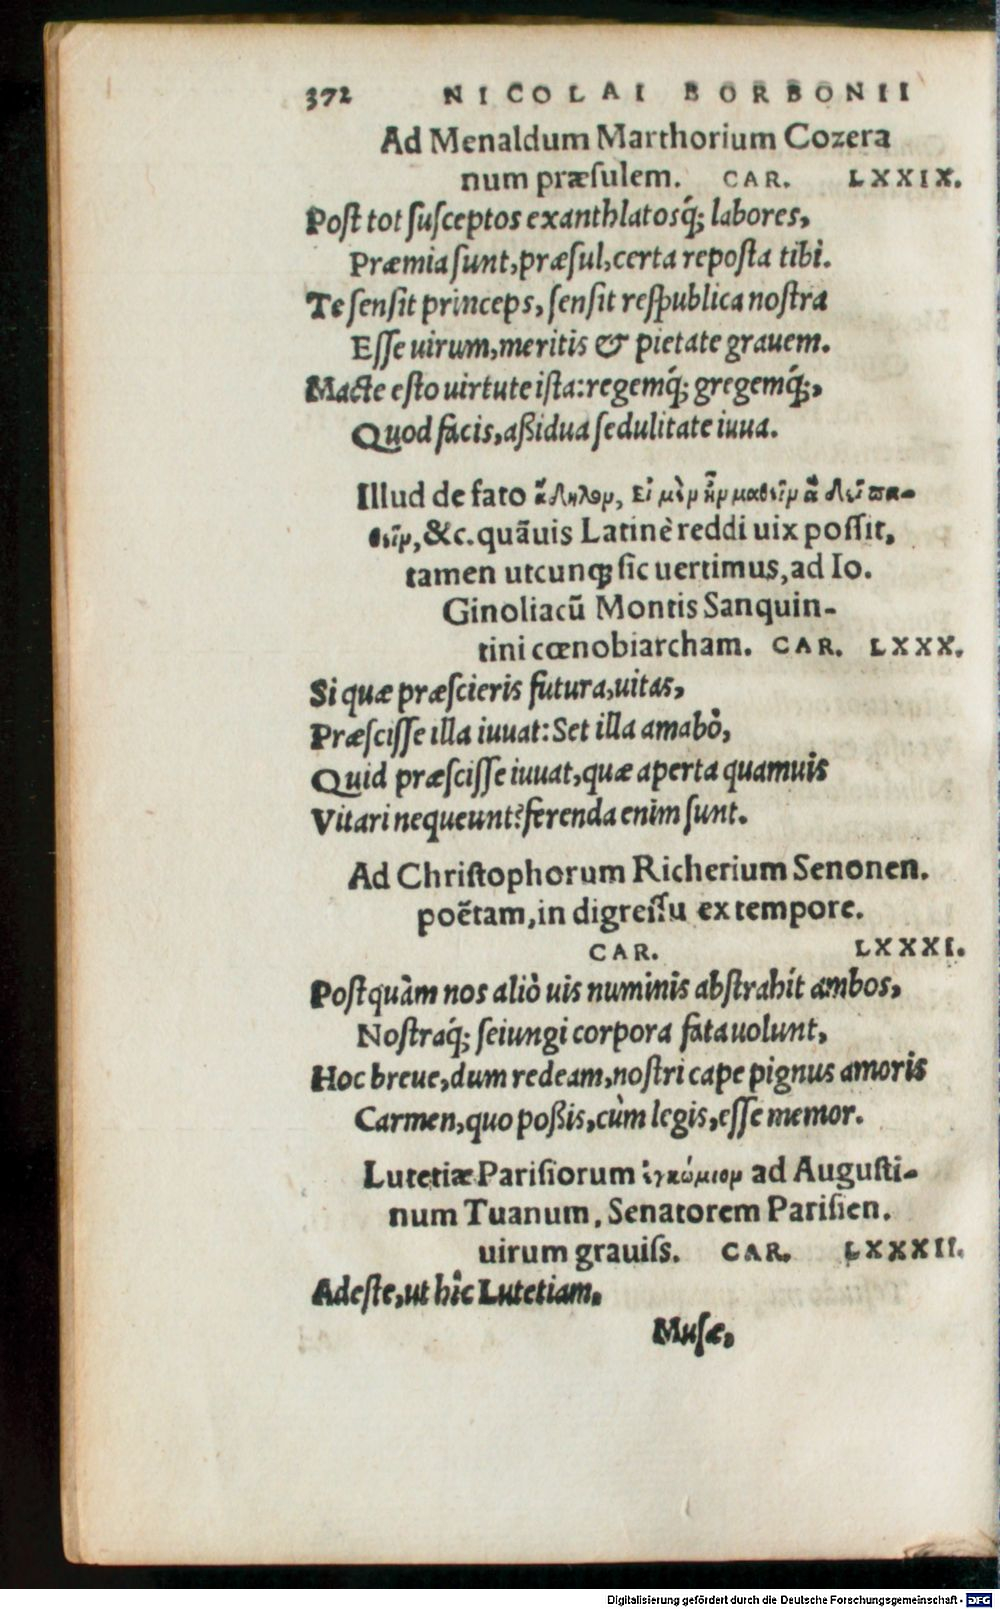 372 NICOLAI BORBONII
Ad Menaldum Marthorium Cozera
num præsulem. CAR. LXXIX.
Post tot susceptos exanthlatosq́; labores,
Præmia sunt, præsul, certa reposta tibi.
Te sensit princeps, sensit respublica nostra
Esse uirum, meritis & pietate grauem.
Macte esto uirtute ista: regemq́; gregemq́;,
Quod facis, aßidua sedulitate iuua.
Illud de fato ἄδηλον, Εἰ μὲν ἦν μαθεῖν ἃ δεῖ πα-
θεῖν, &c. quãuis Latinè reddi uix possit,
tamen utcunq; sic uertimus, ad Io.
Ginoliacũ Montis Sanquin-
tini cœnobiarcham. CAR. LXXX.
Si quæ præscieris futura, uitas,
Præscisse illa iuuat: Set illa amabò,
Quid præscisse iuuat, quæ aperta quamuis
Vitari nequeunt? ferenda enim sunt.
Ad Christophorum Richerium Senonen.
poëtam, in digressu ex tempore.
CAR. LXXXI.
Postquàm nos aliò uis numinis abstrahit ambos,
Nostraq́; seiungi corpora fata uolunt,
Hoc breue, dum redeam, nostri cape pignus amoris
Carmen, quo poßis, cùm legis, esse memor.
Lutetiæ Parisiorum ἐγκώμιον ad Augusti-
num Tuanum, Senatorem Parisien.
uirum grauiss. CAR. LXXXII.
Adeste, ut hîc Lutetiam,
Musæ,
Digitalisierung gefördert durch die Deutsche Forschungsgemeinschaft - DFG